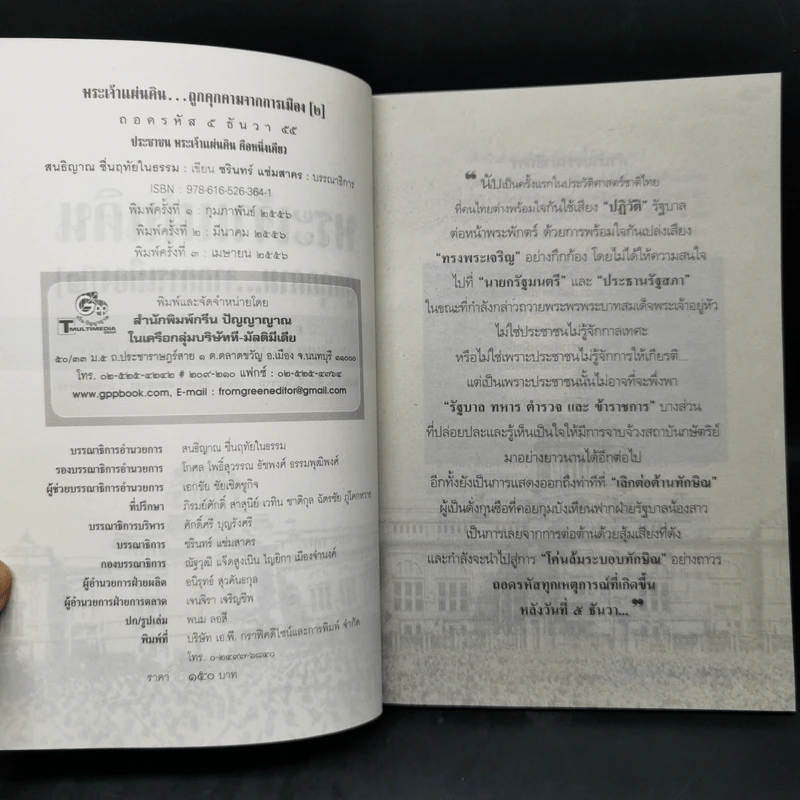 พระเจ้าแผ่นดิน...ถูกคุกคามจากการเมือง [๒]
ถอดรหัส ๕ ธันวา ๕๕
ประชาชน พระเจ้าแผ่นดิน คือหนึ่งเดียว
สนธิญาณ ชื่นฤทัยในธรรม : เขียน ชรินทร์ แช่มสาคร : บรรณาธิการ
ISBN : 978-616-526-364-1
พิมพ์ครั้งที่ ๑ : กุมภาพันธ์ ๒๕๕๖
พิมพ์ครั้งที่ ๒ : มีนาคม ๒๕๕๖
พิมพ์ครั้งที่ ๓ : เมษายน ๒๕๕๖
T MULTIMEDIA
พิมพ์และจัดจำหน่ายโดย
สำนักพิมพ์กรีน ปัญญาญาณ
ในเครือกลุ่มบริษัทที-มัลติมีเดีย
๕๐/๓๓ ม.๕ ถ.ประชาราษฎร์สาย ๑ ต.ตลาดขวัญ อ.เมือง จ.นนทบุรี ๑๑๐๐๐
โทร. ๐๒-๕๒๕-๔๒๔๒ # ๒๐๙-๒๑๐ แฟกซ์ : ๐๒-๕๒๕-๔๗๖๔
www.gppbook.com, E-mail : fromgreeneditor@gmail.com
บรรณาธิการอำนวยการ สนธิญาณ ชื่นฤทัยในธรรม
รองบรรณาธิการอำนวยการ โกศล โพธิ์สุวรรณ ธัชพงศ์ ธรรมพุฒิพงศ์
ผู้ช่วยบรรณาธิการอำนวยการ เอกชัย ชัยเชิดชูกิจ
ที่ปรึกษา ภิรมย์ศักดิ์ สาสุนีย์ เวทิน ชาติกุล ฉัตรชัย ภู่โคกหวาย
บรรณาธิการบริหาร ศักดิ์ศรี บุญรังศรี
บรรณาธิการ ชรินทร์ แช่มสาคร
กองบรรณาธิการ ณัฐวุฒิ แจ็ดสูงเนิน ไญยิกา เมืองจำนงค์
ผู้อำนวยการฝ่ายผลิต อนิรุทธ์ สุวคันธกุล
ผู้อำนวยการฝ่ายการตลาด เจนจิรา เจริญชีพ
ปก/รูปเล่ม พนม ลอสี
พิมพ์ที่ บริษัท เอ.พี. กราฟิคดีไซน์และการพิมพ์ จำกัด
โทร. ๐-๒๔๙๗-๖๘๔๐
ราคา ๑๕๐ บาท
“ นับเป็นครั้งแรกในประวัติศาสตร์ชาติไทย
ที่คนไทยต่างพร้อมใจกันใช้เสียง “ปฏิวัติ” รัฐบาล
ต่อหน้าพระพักตร์ ด้วยการพร้อมใจกันเปล่งเสียง
“ทรงพระเจริญ” อย่างกึกก้อง โดยไม่ได้ให้ความสนใจ
ไปที่ “นายกรัฐมนตรี” และ “ประธานรัฐสภา”
ในขณะที่กำลังกล่าวถวายพระพรพระบาทสมเด็จพระเจ้าอยู่หัว
ไม่ใช่ประชาชนไม่รู้จักกาลเทศะ
หรือไม่ใช่เพราะประชาชนไม่รู้จักการให้เกียรติ...
แต่เป็นเพราะประชาชนนั้นไม่อาจที่จะพึ่งพา
“รัฐบาล ทหาร ตำรวจ และ ข้าราชการ” บางส่วน
ที่ปล่อยปละและรู้เห็นเป็นใจให้มีการจาบจ้วงสถาบันกษัตริย์
มาอย่างยาวนานได้อีกต่อไป
อีกทั้งยังเป็นการแสดงออกถึงท่าทีที่ “เลิกต่อต้านทักษิณ”
ผู้เป็นดั่งกุนซือที่คอยกุมบังเหียนฟากฝ่ายรัฐบาลน้องสาว
เป็นการเลยจากการต่อต้านด้วยสุ้มเสียงที่ดัง
และกำลังจะนำไปสู่การ “โค่นล้มระบอบทักษิณ” อย่างถาวร
ถอดรหัสทุกเหตุการณ์ที่เกิดขึ้น
หลังวันที่ ๕ ธันวา... ”